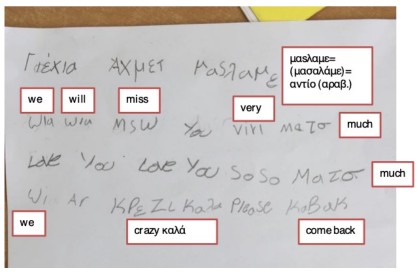 Γιέχια ΑΧΜΕΤ Μαsλαμε
μαsλαμε=
(μασαλάμε)=
αντίο (αραβ.)
we will miss very
Wia Wia MSW You Viri ματσ much
Love You Love You SoSo Ματσ much
Wi Ar ΚΡΕΖι Καλα Please ΚαΒακ
we crazy καλά come back